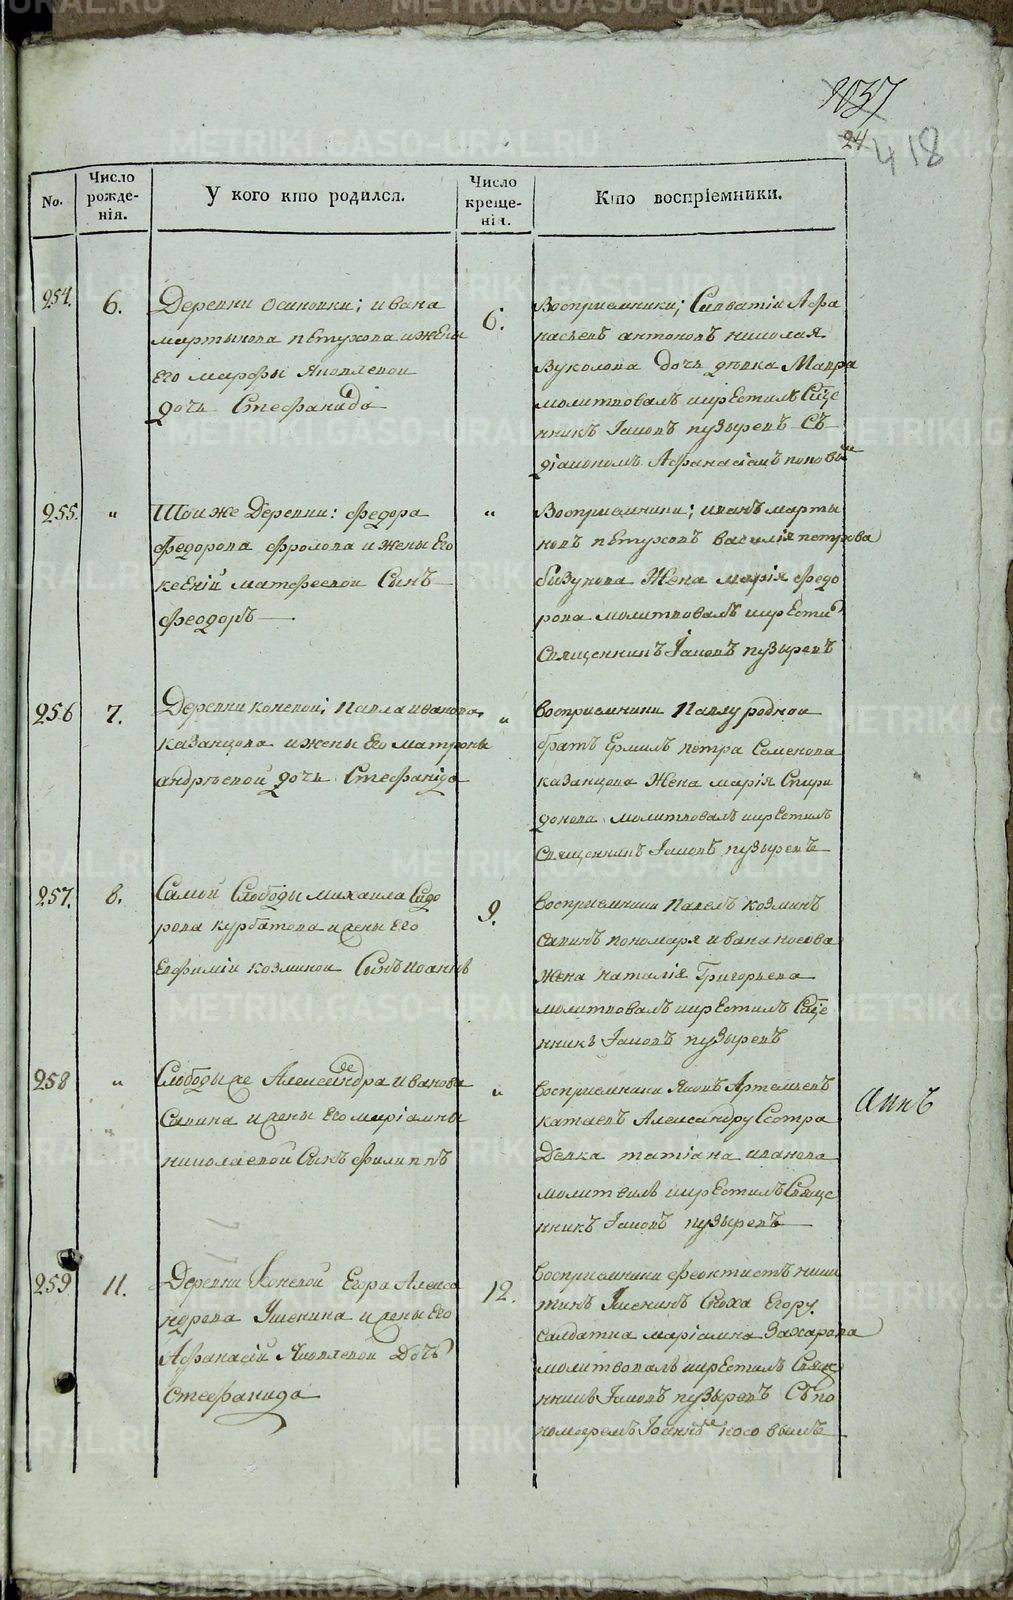 1037
24
418
No.
Число рожде-нія.
У кого кто родился.
Число креще-нія.
Кто воспріемники.
254.
6.
Деревни Осиновки; ивана
мартынова пѣтухова ижены
Его марфы Яковлевой
дочь Стефанида
6.
Воспріемники; Савватій Афа
насьевъ антоновъ николая
Вуколова дочь дѣвка Мавра
молитвовалъ икрЕстилъ Свще
нникъ Іаковъ пузыревъ Съ
діакономъ Афанасіемъ поповы
255.
"
Тои же Деревни: федора
Федорова фролова и жены Его
ксЕніи матфеевой Сынъ
Феодоръ
"
Воспріемники; иванъ марты
новъ пѣтуховъ василія петрова
бизунова Жена марія федо
рова молитвовалъ икрЕсти
Священникъ Іаковъ пузыревъ
256
7.
Деревни коневой; Павла иванова
казанцова ижены Его матроны
андрѣевой дочь Стефаніда
"
воспріемники Павлу родной
братъ Ермилъ петра Семенова
казанцова Жена марія Спири
донова молитвовалъ икрЕстилъ
Священникъ Іаковъ пузыревъ
257.
8.
Самой Слободы михаила Сидо
рова курбатова ижены Его
Евфиміи козминой Сынъ иоаннъ
9.
воспріемники Павелъ козминъ
савинъ пономаря ивана носова
Жена наталія Григорьева
молитвовалъ икрЕстилъ Свще
нникъ Іаковъ пузыревъ
258
"
Слободы же Александра Иванова
Савина ижены Его маріамны
николаевой Сынъ филиппъ
"
воспріемники Яковъ Артемьевъ
катаевъ Александру Сестра
Девка татіана иванова
молитвилъ икрЕстилъ Свяще
нникъ Іаковъ пузыревъ
259
11.
Деревни Коневой Егора Алекса
ндрова Ушенина ижены Его
Афанасіи Яковлевой Дочь
Стефанида
12.
воспріемники феоктистъ ники
тинъ Ушенинъ Сноха Егору
Салдатка маріамна Захарова
молитвовалъ икрЕстилъ Свящ
нникъ Іаковъ пузыревъ Съ по
номаремъ Іоанномъ носовымъ
METRIKI.GASO-URAL.RU